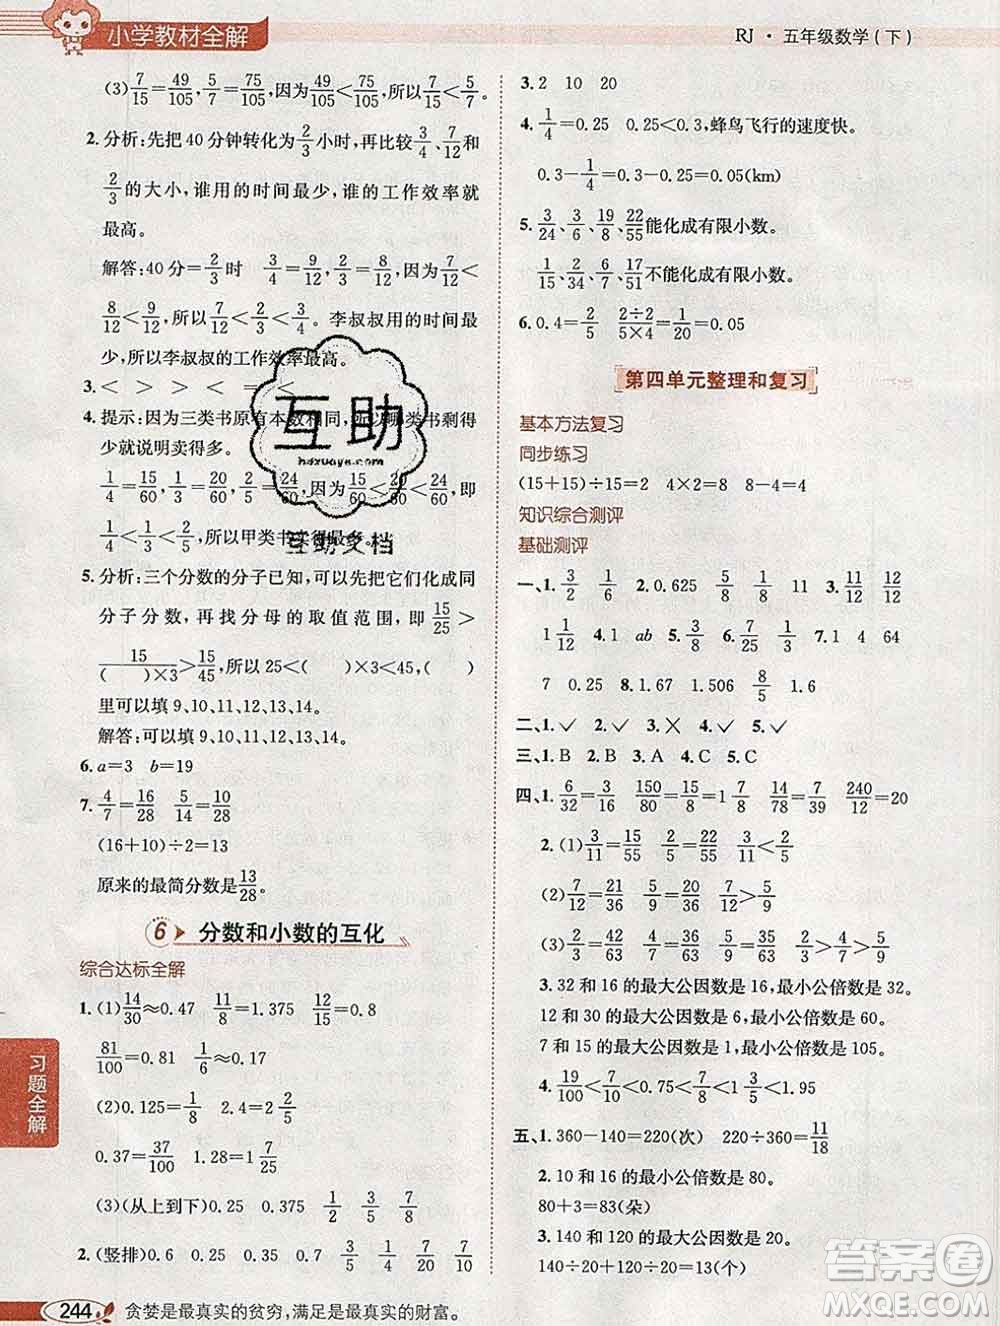 小学教材全解
RJ · 五年级数学(下)
(3) 7/15=49/105, 5/7=75/105, 因为49/105<75/105, 所以7/15<5/7。
2. 分析:先把40分钟转化为2/3小时,再比较3/4、7/12和
2/3的大小,谁用的时间最少,谁的工作效率就
最高。
解答:40分=2/3时 3/4=9/12 2/3=8/12,因为7/12<
8/12<9/12,所以7/12<2/3<3/4。李叔叔用的时间最
少,所以李叔叔的工作效率最高。
3. < > > > < = < <
4. 提示:因为三类书原有本数相同,所以哪类书剩得
少就说明卖得多。
1/4=15/60, 1/3=20/60, 2/5=24/60,因为15/60<20/60<24/60,即
1/4<1/3<2/5,所以甲类书卖得最多。
5. 分析:三个分数的分子已知,可以先把它们化成同
分子分数,再找分母的取值范围,即15/25>
15/(  )×3>15/45,所以25<(  )×3<45,(  )
里可以填9、10、11、12、13、14。
解答:可以填9、10、11、12、13、14。
6. a=3 b=19
7. 4/7=16/28 5/14=10/28
(16+10)÷2=13
原来的最简分数是13/28。
6 分数和小数的互化
综合达标全解
1. (1)14/30≈0.47 11/8=1.375 12/15=0.8
81/100=0.81 1/6≈0.17
(2)0.125=1/8 2.4=2 2/5
0.37=37/100 1.28=1 7/25
(3)(从上到下)0.25 0.75 3/8 7/8
2. (竖排)0.6 0.25 0.35 0.12 4/25 7/8
习题全解
244
贪婪是最真实的贫穷,满足是最真实的财富。
3. 2 10 20
4. 1/4=0.25 0.25<0.3,蜂鸟飞行的速度快。
0.3-1/4=0.3-0.25=0.05(km)
5. 3/24、3/6、19/8、22/55能化成有限小数。
4/15、25/34、6/36、17/51不能化成有限小数。
6. 0.4=2/5 2÷2/5×4=1/20=0.05
第四单元整理和复习
基本方法复习
同步练习
(15+15)÷15=2 4×2=8 8÷4=2
知识综合测评
基础测评
一、1. 3/2 1/6 6 2. 0.625 5/8 1/8 11 3. 11/12 12/12
1 1/12 4. 1 ab 5. 3/8 6. 7/25 1/3 7. 1 4 64
7 0.25 8. 1.67 1.506 8/5 1.6
二、1. ✓ 2. ✓ 3. ✗ 4. ✓ 5. ✓
三、1. B 2. B 3. A 4. C 5. C
四、1. 6/32=3/16 150/80=15/8=1 7/8 14/78=7/39 240/12=20
2. (1)3/11=15/55 2/5=22/55 3/11<2/5
(2)7/12=14/24 3/8=9/24 7/12>3/8
(3)5/6=20/24 5/8=15/24 5/12=10/24 5/6>5/8>5/12
3. 32和16的最大公因数是16,最小公倍数是32。
12和30的最大公因数是6,最小公倍数是60。
7和15的最大公因数是1,最小公倍数是105。
4. 19/100<7/20<2/5<7/10
五、1. 360-140=220(次) 220÷360=11/18
2. 10和16的最小公倍数是80。
80+3=83(朵)
3. 140和120的最大公因数是20。
140÷20+120÷20=13(个)
互助
hdzuoye.com
互助文档
答案圈
MXQE.COM